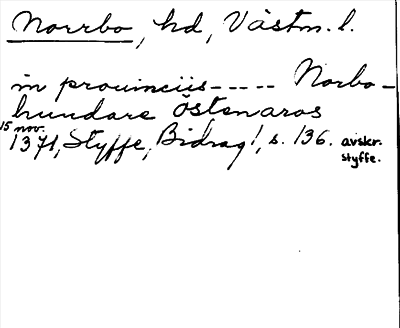 Norrbo, hd, Västm. l.
in provinciis ----- Norbo-
hundare Östenaros
15 nov.
1371, Styffe, Bidrag 1, s. 136. avskr.
styffe.